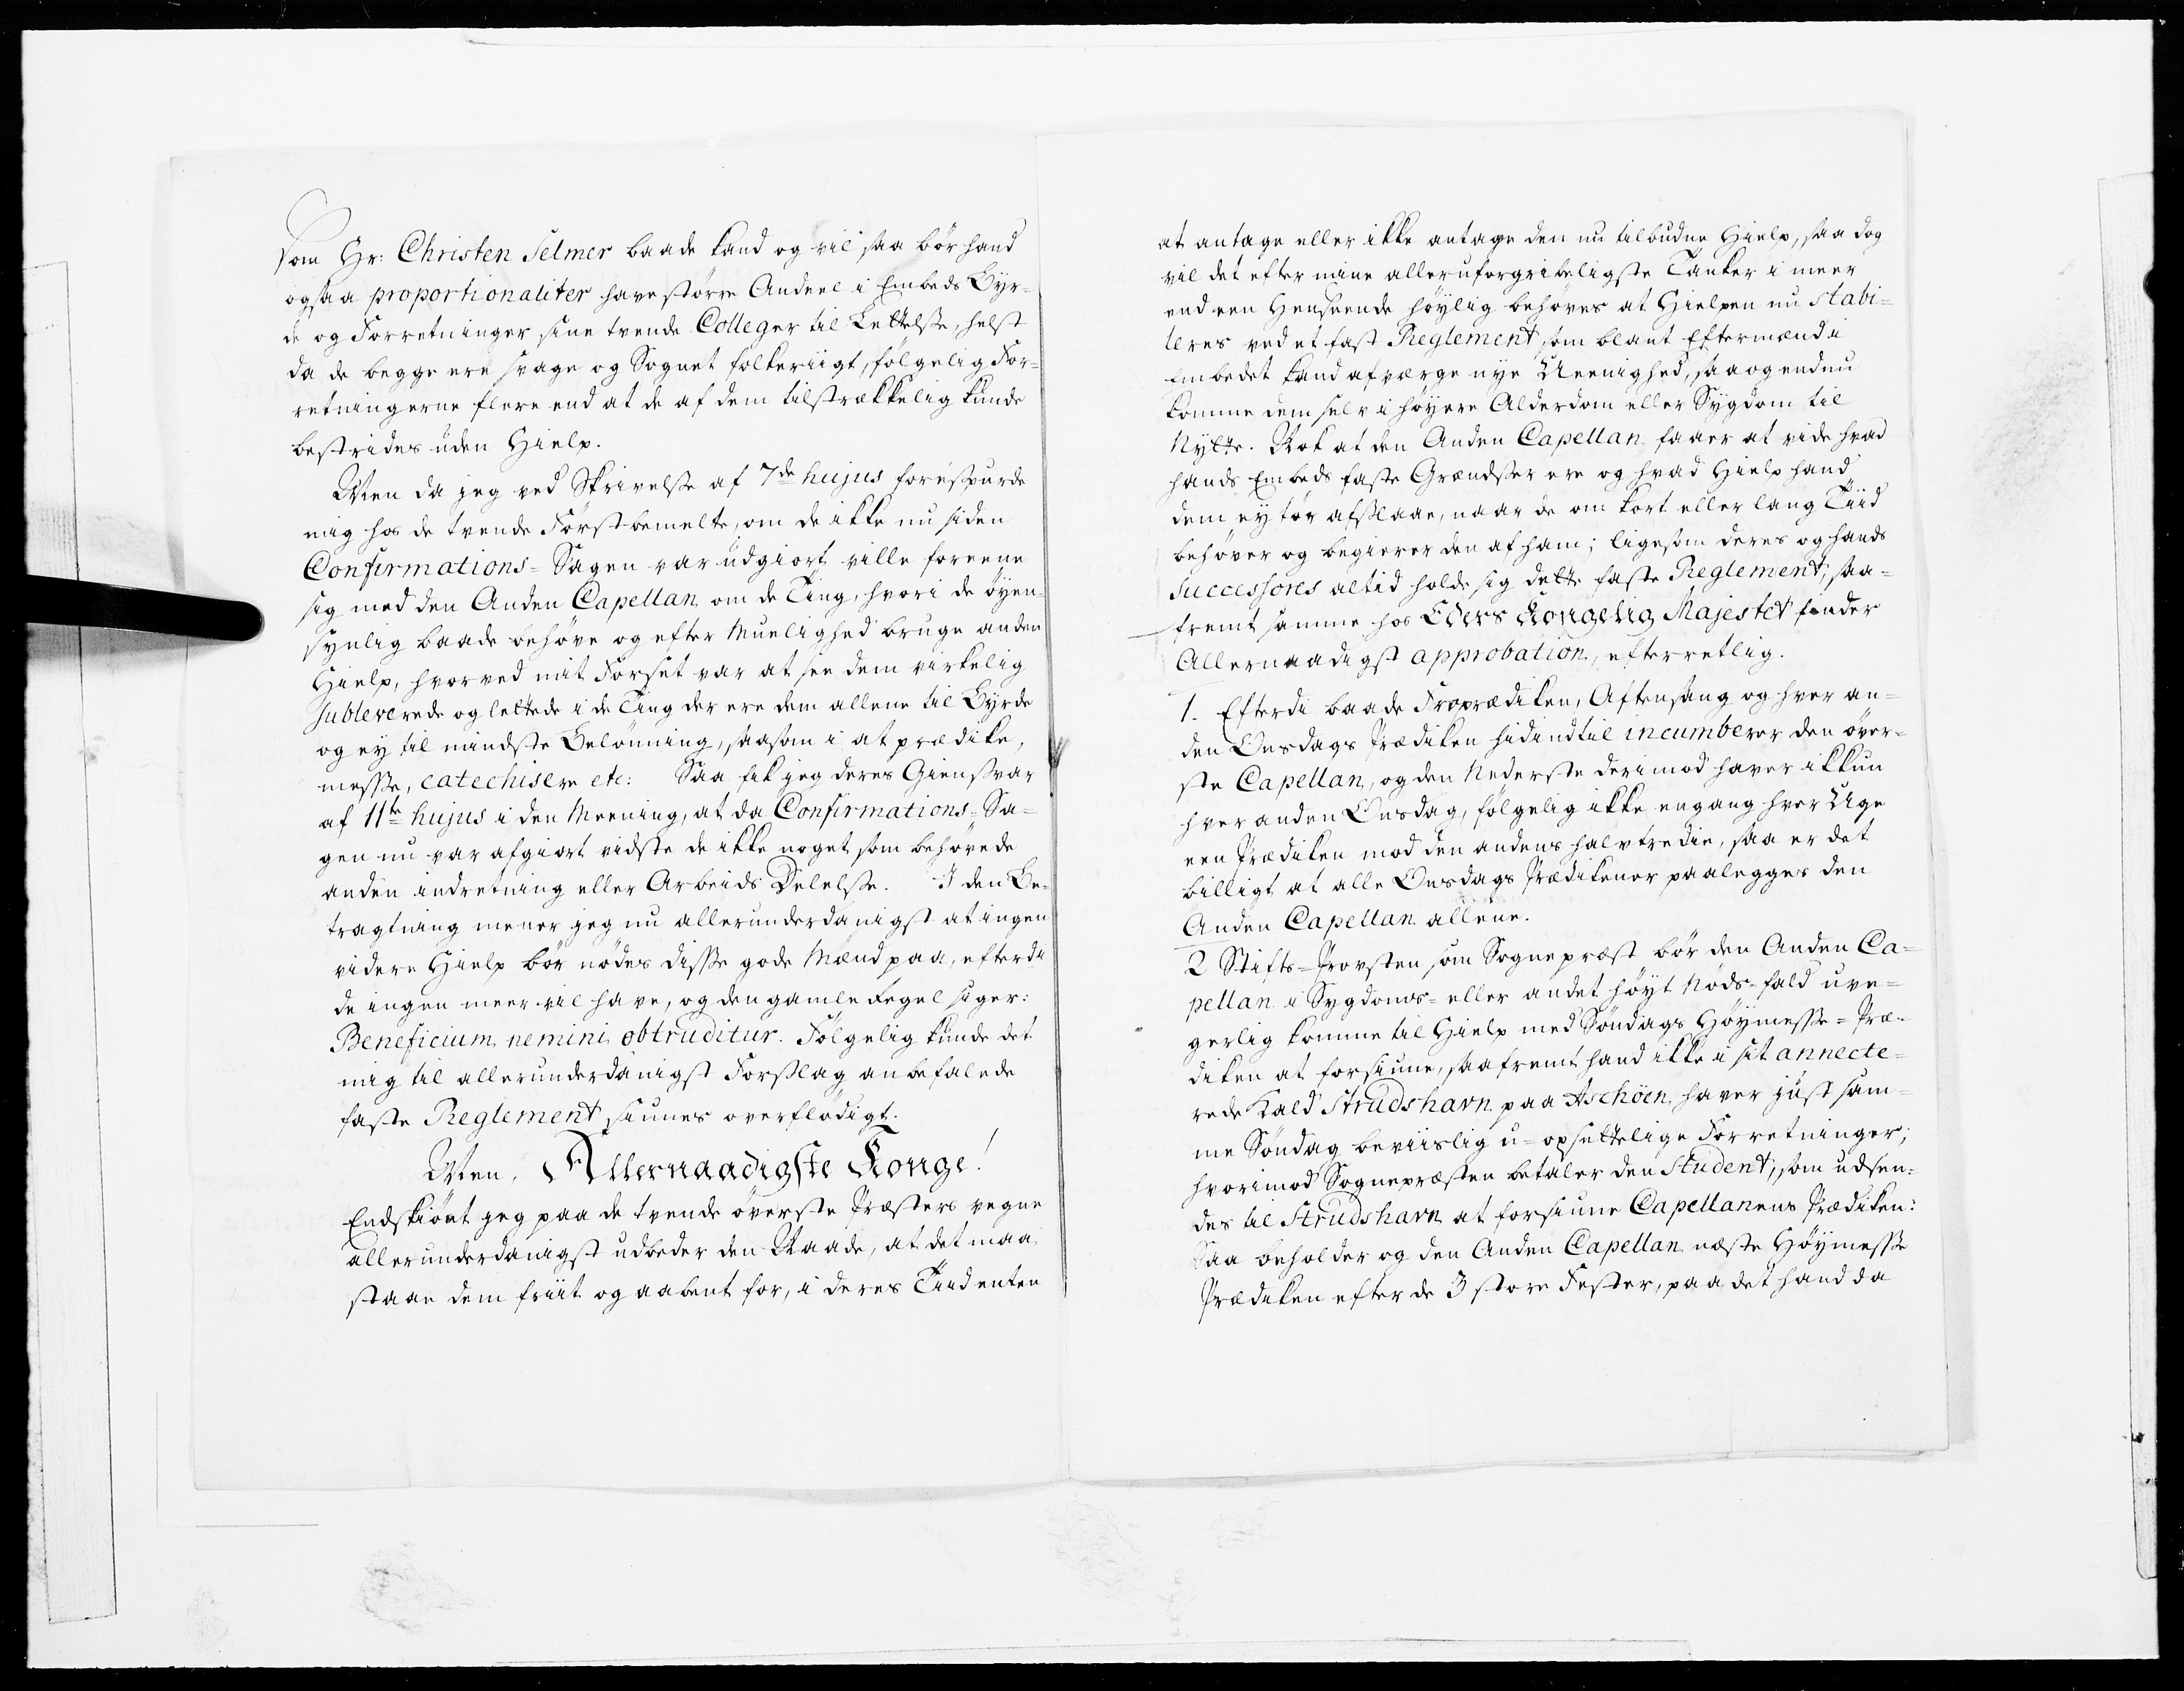 som Hr: Christen Selmer baade kand og vil saa bör hand
ogsaa proportionaliter have större Andeel i Embeds Byr-
de og Forretninger sine tvende Colleger til Lettelsse, helst
da de begge ere svage og Sognet folkeriigt, fölgelig For-
retningerne flere end at de af dem tilstrækkelig kunde
bestrides uden Hielp.
Men da jeg ved Skrivelsse af 7de hujus foresspurde
mig hos de tvende Först bemelte, om de ikke nu siden
Confirmations-Sagen var udgiort ville foreene
sig med den Anden Capellan om de Ting, hvori de öyen-
synlig baade behöve og efter Muelighed bruge anden
Hielp, hvorved mit Forset var at see dem virkelig
subleverede og lettede i de Ting der ere dem allene til Byrde
og ey til mindste Belönning, saasom i at prædike,
messe, catechisere etc: Saa fik jeg deres Giensvar
af 11te hujus i den Meening, at da Confirmations-Sa-
gen nu var afgiort vidste de ikke noget som behövede
anden indretning eller Arbeids Delelsse. I den Be-
tragtning mener jeg nu allerunderdanigst at ingen
videre Hielp bör nödes disse gode Mænd paa, efterdi
de ingen meer vil have, og den gamle Regel siger:
Beneficium nemini obtruditur. Fölgelig kunde det
mig til allerunderdanigst Forslag anbefalede
faste Reglement siunes overflödigt.
Men, Allernaadigste Konge!
Endskiönt jeg paa de tvende överste Præsters vegne
allerunderdanigst udbeder den Naade, at det maa
staae dem friit og aabent for, i deres Tiid enten
at antage eller ikke antage den nu tilbudne Hielp, saa dog
vil det efter mine alleruforgribeligste Tanker i meer
end een Henseende höylig behöves at Hielpen nu stabi-
leres ved et fast Reglement som blant Eftermænd i
Embedet kand afværge nye Ueenighed, saa og endnu
komme dem selv i höyere Alderdom eller Sygdom til
Nytte. Nok at den Anden Capellan faaer at vide hvad
hands Embeds faste Grændsser ere og hvad Hielp hand
dem ey tör afslaae, naar de om kort eller lang Tiid
behöver og begierer den af ham; ligesom deres og hands
Successores altid holde sig dette faste Reglement, saa-
fremt samme hos Eders Kongelig Majestet finder
Allernaadigst approbation, efterretlig.
1. Efterdi baade Froprædiken, Aftensang og hver an-
den Onsdags Prædiken hidindtil incumberer den över-
ste Capellan, og den Nederste derimod haver ikkun
hver anden Onsdag, fölgelig ikke engang hver Uge
een Prædiken mod den andens halvtredie, saa er det
billigt at alle Onsdags Prædikener paalegges den
Anden Capellan allene.
2 Stifts-Provsten som Sognepræst bör den Anden Ca-
pellan i Sygdoms- eller andet höyt Nöds-fald uve-
gerlig komme til Hielp med Söndags Höymesse-Præ-
diken at forsiune, saafremt hand ikke i sit annecte-
rede Kald Strudshavn paa Aschöen haver just sam-
me Söndag beviislig u-opsettelige Forretninger;
hvorimod Sognepræsten betaler den Student, som udsen-
des til Strudshavn at forsiune Capellanens Prædiken:
Saa beholder og den Anden Capellan næste Höymesse
Prædiken efter de 3 store Fester, paa det hand da